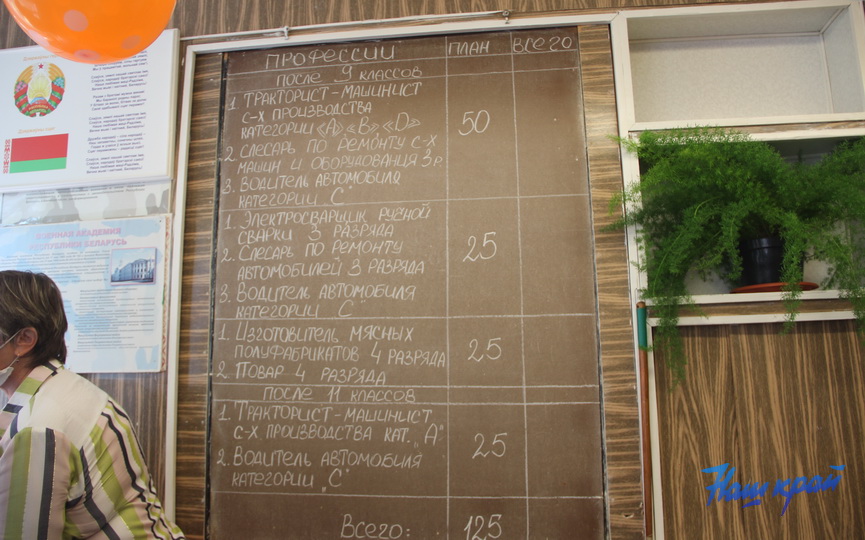 ПРОФЕССИИ ПЛАН ВСЕГО
ПОСЛЕ 9 КЛАССОВ
1. ТРАКТОРИСТ-МАШИНИСТ
С-Х ПРОИЗВОДСТВА
КАТЕГОРИИ «А» «В» «D»
50
2 СЛЕСАРЬ ПО РЕМОНТУ С-Х
МАШИН И ОБОРУДОВАНИЯ 3 р.
3. ВОДИТЕЛЬ АВТОМОБИЛЯ
КАТЕГОРИИ "С"
1. ЭЛЕКТРОСВАРЩИК РУЧНОЙ
СВАРКИ 3 РАЗРЯДА
2. СЛЕСАРЬ ПО РЕМОНТУ
АВТОМОБИЛЕЙ 3 РАЗРЯДА
25
3. ВОДИТЕЛЬ АВТОМОБИЛЯ
КАТЕГОРИИ "С"
1. ИЗГОТОВИТЕЛЬ МЯСНЫХ
ПОЛУФАБРИКАТОВ 4 РАЗРЯДА
25
2 ПОВАР 4 РАЗРЯДА
ПОСЛЕ 11 КЛАССОВ
1. ТРАКТОРИСТ-МАШИНИСТ
С-Х ПРОИЗВОДСТВА КАТ. „А"
25
2. ВОДИТЕЛЬ АВТОМОБИЛЯ
КАТЕГОРИИ „С"
ВСЕГО: 125
ВОЕННАЯ АКАДЕМИЯ
РЕСПУБЛИКИ БЕЛАРУСЬ
Наш край